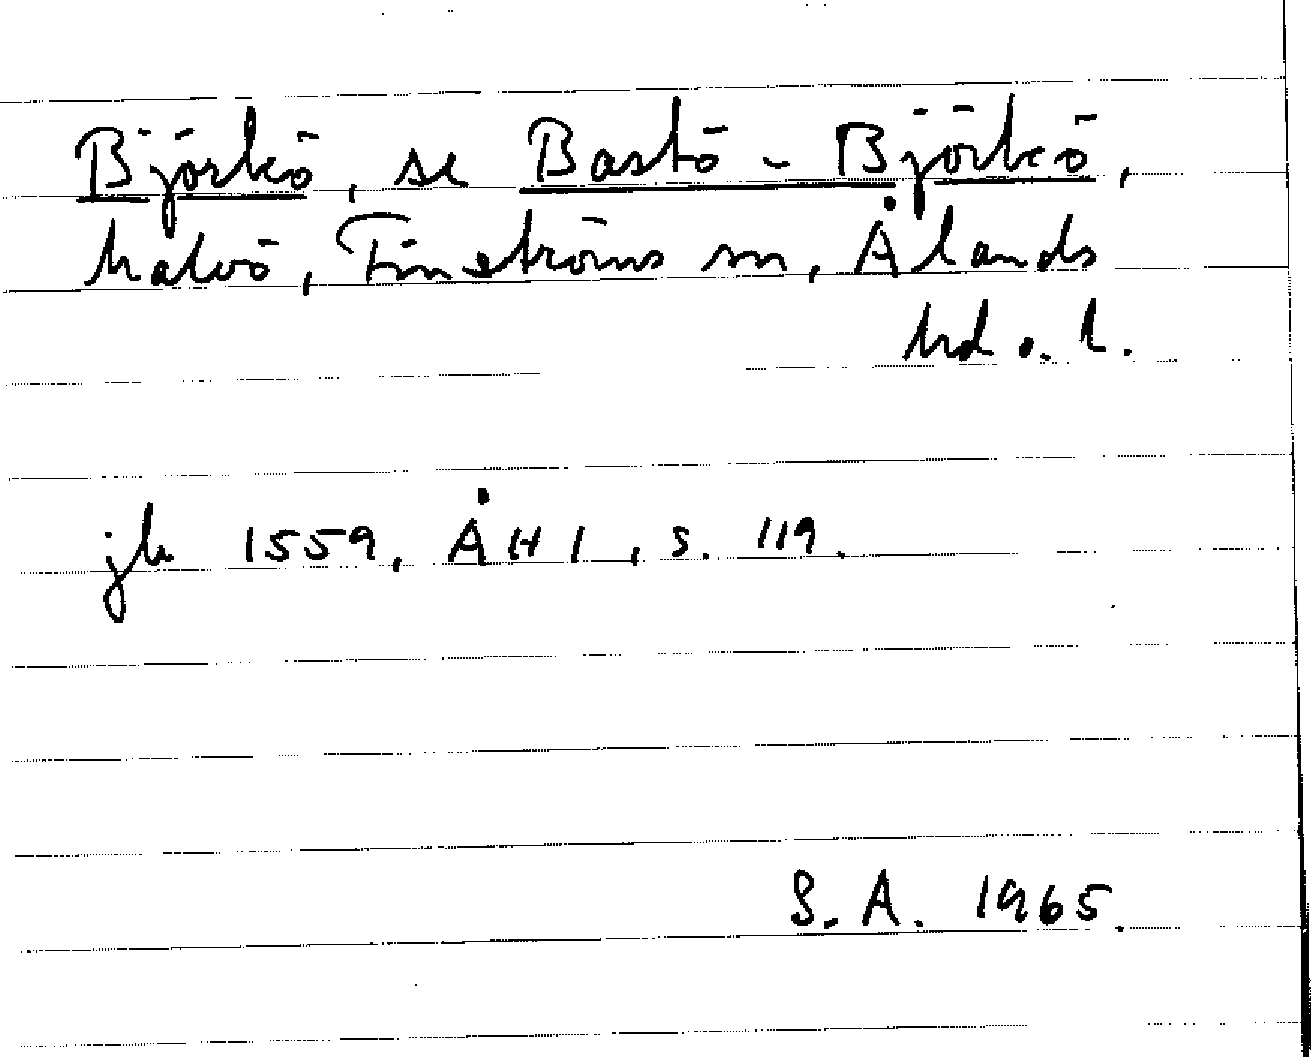 Björkö, se Bastö-Björkö,
halvö, Finströms sn, Ålands
hd o. l.
jb 1559, ÅH I, s. 119.
S. A. 1965.